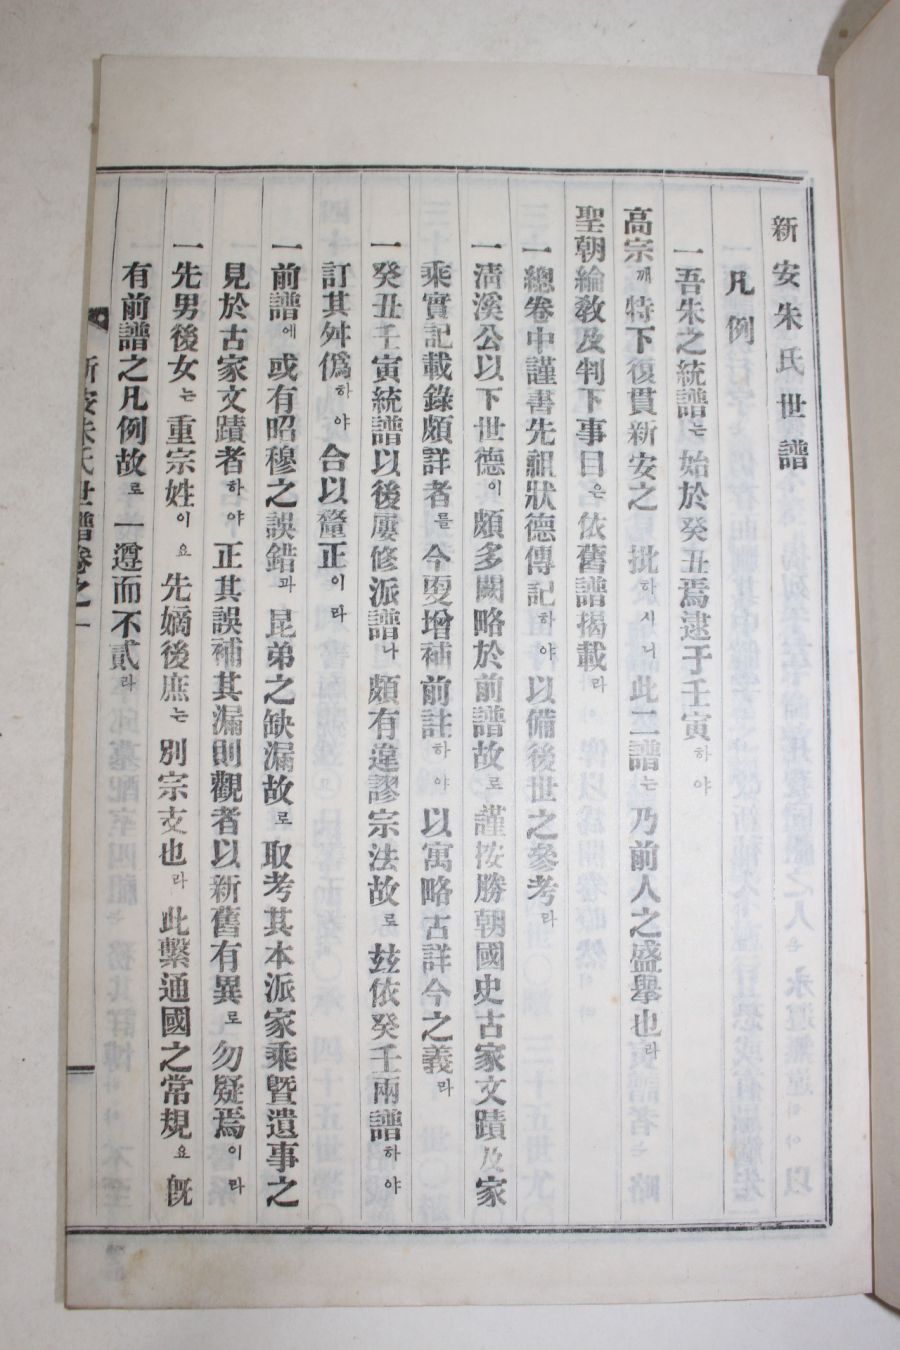 新安朱氏世譜
凡例
一吾朱之統譜는始於癸丑焉逮于壬寅하야
高宗께特下復貫新安之 批하시니此二譜는乃前人之盛擧也라
聖朝綸敎及判下事目은依舊譜揭載라
一總卷中謹書先祖狀德傳記하야以備後世之參考라
一淸溪公以下世德이頗多闕略於前譜故로謹按勝朝國史古家文蹟及家
乘實記載錄頗詳者를今更增補前註하야以寓略古詳今之義라
一癸丑壬寅統譜以後屢修派譜나頗有違謬宗法故로玆依癸壬兩譜하야
訂其舛僞하야合以釐正이라
一前譜에或有昭穆之誤錯과昆弟之缺漏故로取考其本派家乘曁遺事之
見於古家文蹟者하야正其誤補其漏則觀者以新舊有異로勿疑焉이라
一先男後女는重宗姓이요先嫡後庶는別宗支也라此繫通國之常規요旣
有前譜之凡例故로一遵而不貳라
新安朱氏世譜卷之一